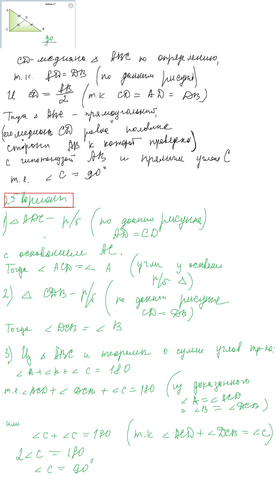 90
CD-медиана Δ ABC по определению,
т.к. AD=DB (по данным рисунка)
И CD = AB/2 (т.к CD = AD = DB)
Тогда Δ ABC - прямоугольный,
(т.к. медиана CD равна половине
стороны AB к которой проведена)
с гипотенузой AB и прямым углом C
т.е. ∠C = 90°
2 способ
1) Δ ADC - р/б (по данным рисунка
AD = CD)
с основанием AC.
Тогда ∠ACD = ∠A (углы у основан
р/б Δ)
2) Δ CDB - р/б (по данным рисунка
CD = DB)
Тогда ∠DCB = ∠B
3) Из Δ ABC и теоремы о сумме углов
∠A + ∠B + ∠C = 180
т.е. ∠ACD + ∠DCB + ∠C = 180 (из доказанного
∠A = ∠ACD
∠B = ∠DCB)
или
∠C + ∠C = 180 (т.к ∠ACD + ∠DCB = ∠C)
2∠C = 180
∠C = 90°